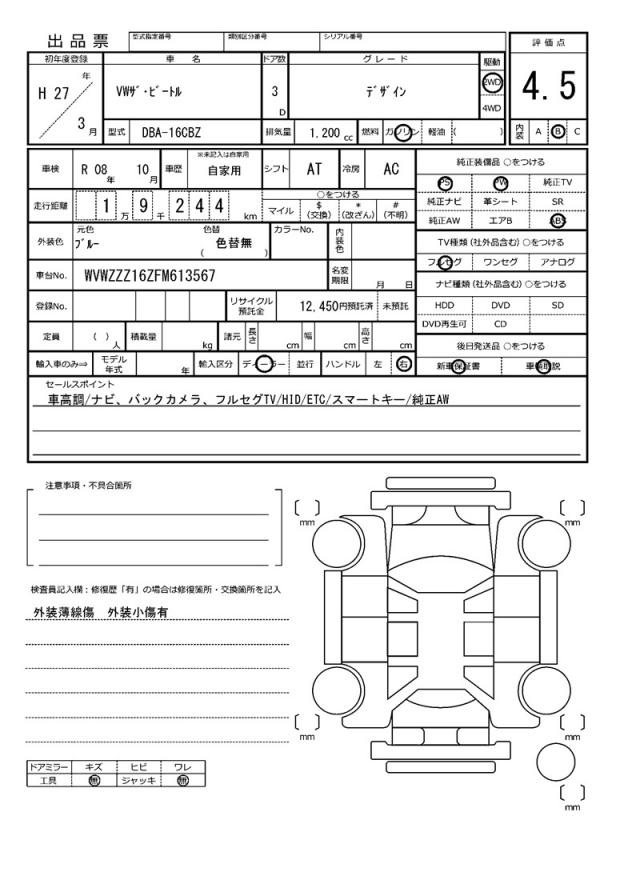 出品票 型式指定番号 類別区分番号 シリアル番号
評価点
4.5
内装 A B C
初年度登録 車名 ドア数 グレード 駆動
H 27年 3月
VWザ・ビートル 3D デザイン 2WD 4WD
型式 DBA-16CBZ 排気量 1.200cc 燃料 ガソリン 軽油 ( )
車検 R 08年 10月 車歴 ※未記入は自家用 自家用 シフト AT 冷房 AC
走行距離 1万 9千 2 4 4 km
○をつける
マイル $(交換) *(改ざん) #(不明)
外装色 元色 ブルー 色替 ( 色替無 ) カラーNo. 内装色
車台No. WVWZZZ16ZFM613567 名変期限 月 日
登録No. リサイクル預託金 12,450円預託済 未預託
定員 ( )人 積載量 kg 諸元 長さ cm 幅 cm 高さ cm
輸入車のみ⇒ モデル年式 年 輸入区分 ディーラー 並行 ハンドル 左 右
純正装備品 ○をつける
PS PW 純正TV
純正ナビ 革シート SR
純正AW エアB ABS
TV種類 (社外品含む) ○をつける
フルセグ ワンセグ アナログ
ナビ種類 (社外品含む) ○をつける
HDD DVD SD
DVD再生可 CD
後日発送品 ○をつける
新車保証書 車輌取説
セールスポイント
車高調/ナビ、バックカメラ、フルセグTV/HID/ETC/スマートキー/純正AW
注意事項・不具合箇所
検査員記入欄：修復歴「有」の場合は修復箇所・交換箇所を記入
外装薄線傷 外装小傷有
ドアミラー キズ ヒビ ワレ
工具 無 ジャッキ 無
mm
mm
mm
mm
mm